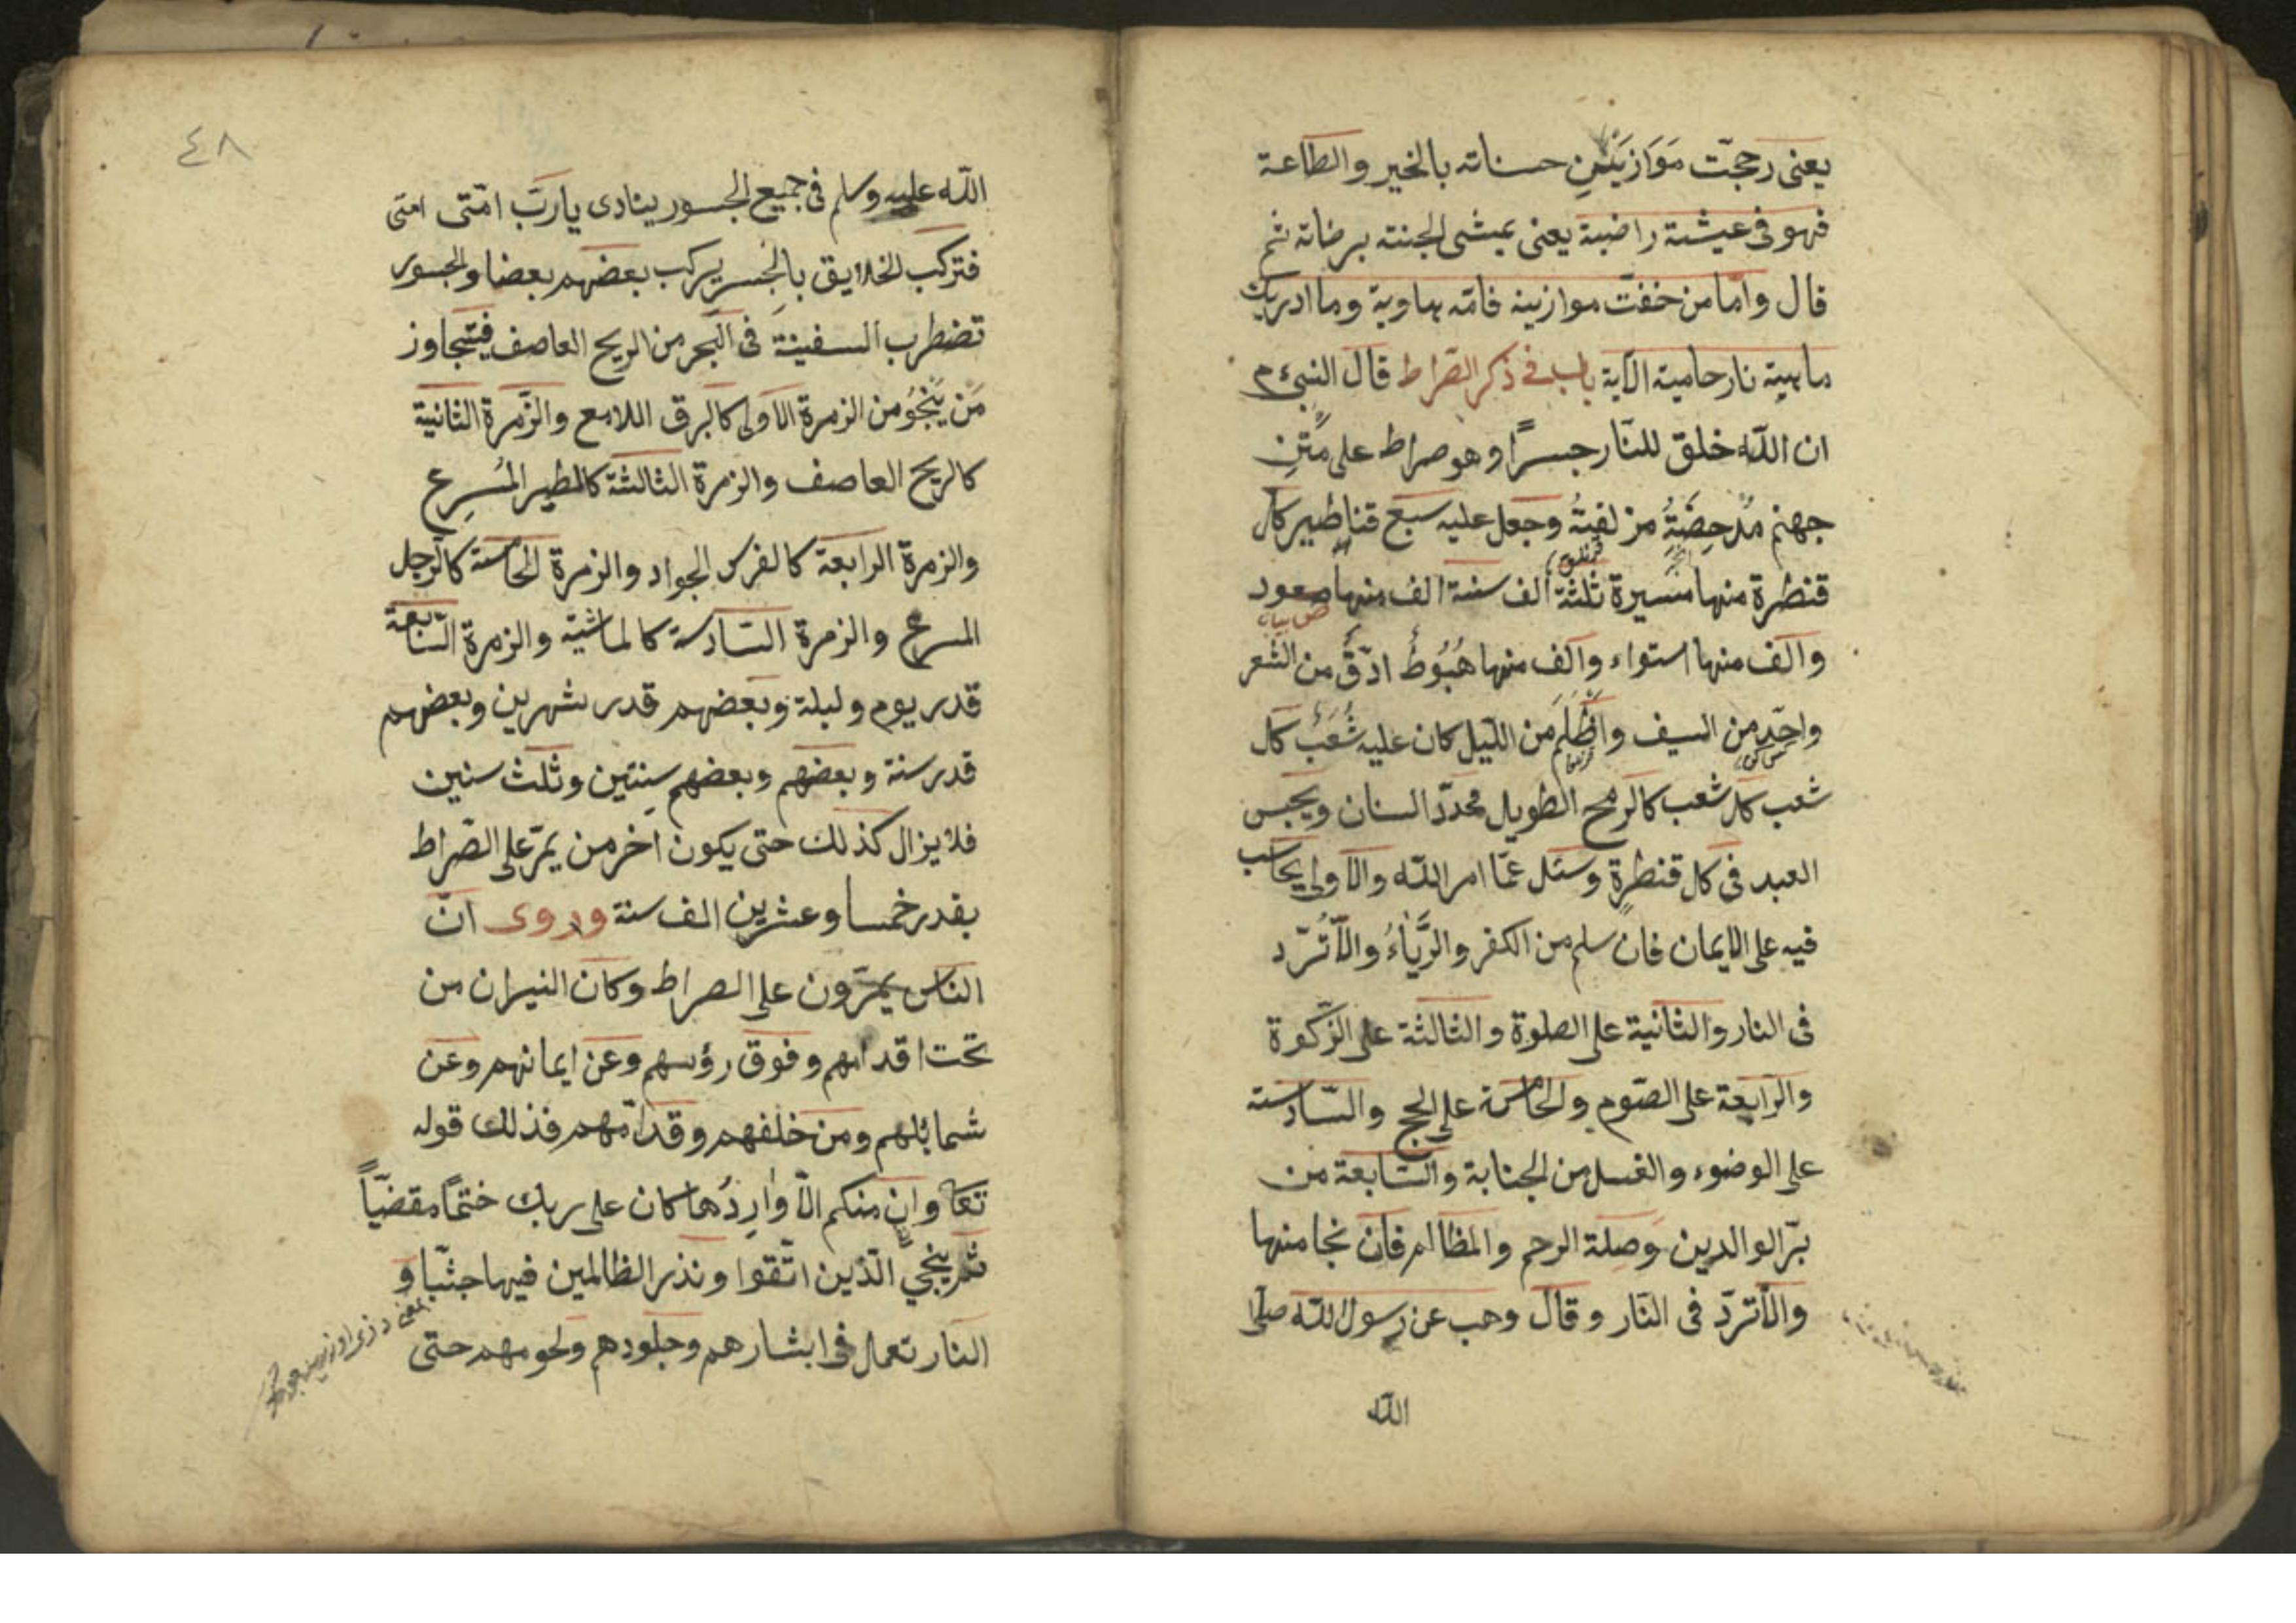 يعنى رجحت مَوَازينين حسناته بالخير والطاعة
فهو فى عيشة راضية يعنى عيشى الجنة برضاته ثم
قال وامّا من خفّت موازينه فامّه هاوية وما ادريك
ماهية نار حامية الآية باب فى ذكر الصّراط قال النبىء م
ان الله خلق للنّار جسرًا وهو صراط على متنِ
جهنم مُدْحِضَةُ مزلفيةُ وجعل عليه سبع قناطير كل
قنطرة منها مسيرة ثلثة الف سنة الف منها صعود
والف منها استواء والف منها هُبُوطُ ادقُّ من الشعر
واحدّ من السيف واظْلَمَ من اللّيل كان عليه شُعَبُ كل
شعب كل شعب كالرمح الطويل محدّد السنان ويحبس
العبد فى كل قنطرة وسئل عمّا امر اللّه والاولى يحاسب
فيه على الايمان فان سلم من الكفر والرِّيَاءُ والّا تُرّد
فى النار والثانية على الصلوة والثالثة على الزّكوة
والرّابعة على الصّوم والخامسة على الحج والسّادسة
على الوضوء والغسل من الجنابة والسّابعة من
برّ الوالدين وصلة الرحم والمظالم فان نجا منها
والّا تردّ فى النّار وقال وهب عن رسول اللّه صلى
اللّه
٤٨
اللّه عليه وسلم فى جميع الجسور ينادى يا ربّ امّتى امتى
فتركب الخلايق بالجسر يركب بعضهم بعضا والجسور
تضطرب السفينة فى البحر من الريح العاصف فيتجاوز
مَن يَنْجُو من الزمرة الاولى كالبرق اللامع والزّمرة الثانية
كالريح العاصف والزمرة الثالثة كالطير المُسرِع
والزمرة الرابعة كالفرس الجواد والزمرة الخامسة كالرّجل
المسرع والزمرة السّادسة كالماشية والزمرة السّابعة
قدر يوم وليلة وبعضهم قدر شهرين وبعضهم
قدر سنة وبعضهم وبعضهم سنتين وثلث سنين
فلا يزال كذلك حتى يكون اخر من يمرّ على الصّراط
بقدر خمسا وعشرين الف سنة وروى انّ
الناس يمرّون على الصراط وكان النيران من
تحت اقدامهم وفوق رؤسهم وعن ايمانهم وعن
شمائلهم ومن خلفهم وقدّامهم فذلك قوله
تعا وان منكم الّا وارِدُها كان على ربك ختمًا مقضيّاً
ثم ينجي الّذين اتّقوا ونذر الظالمين فيها جثيّا و
النّار تعمل فى ابشارهم وجلودهم ولحومهم حتى